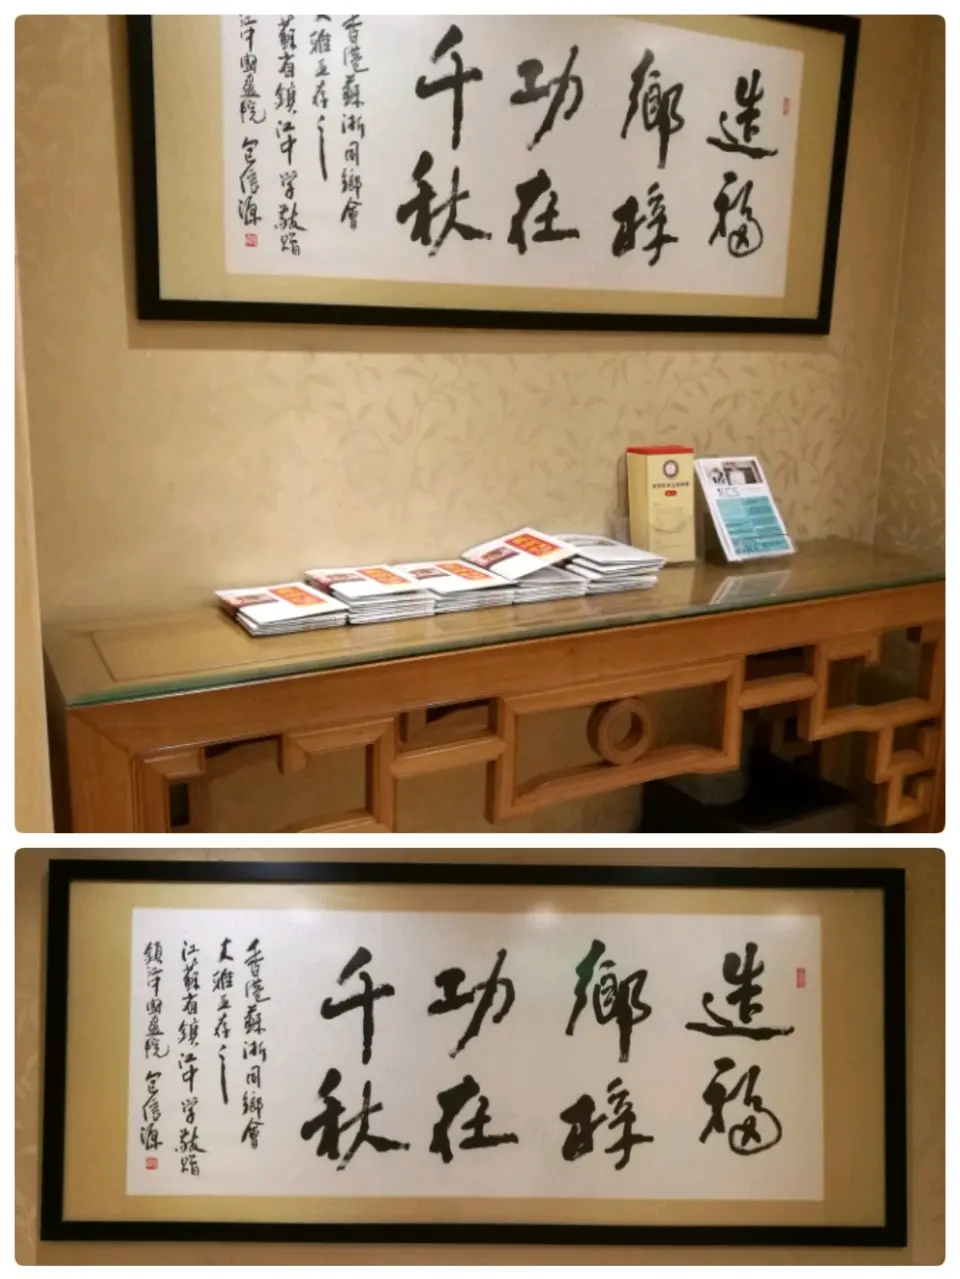 千 功 鄉 造
秋 在 梓 福
香港蘇浙同鄉會
大雅正存之
江蘇省鎮江中学敬贈
鎮江中國画院 包信源
KCS
造福
鄉梓
功在
千秋
香港蘇浙同鄉會
大雅正存之
江蘇省鎮江中学敬贈
鎮江中國画院 包信源